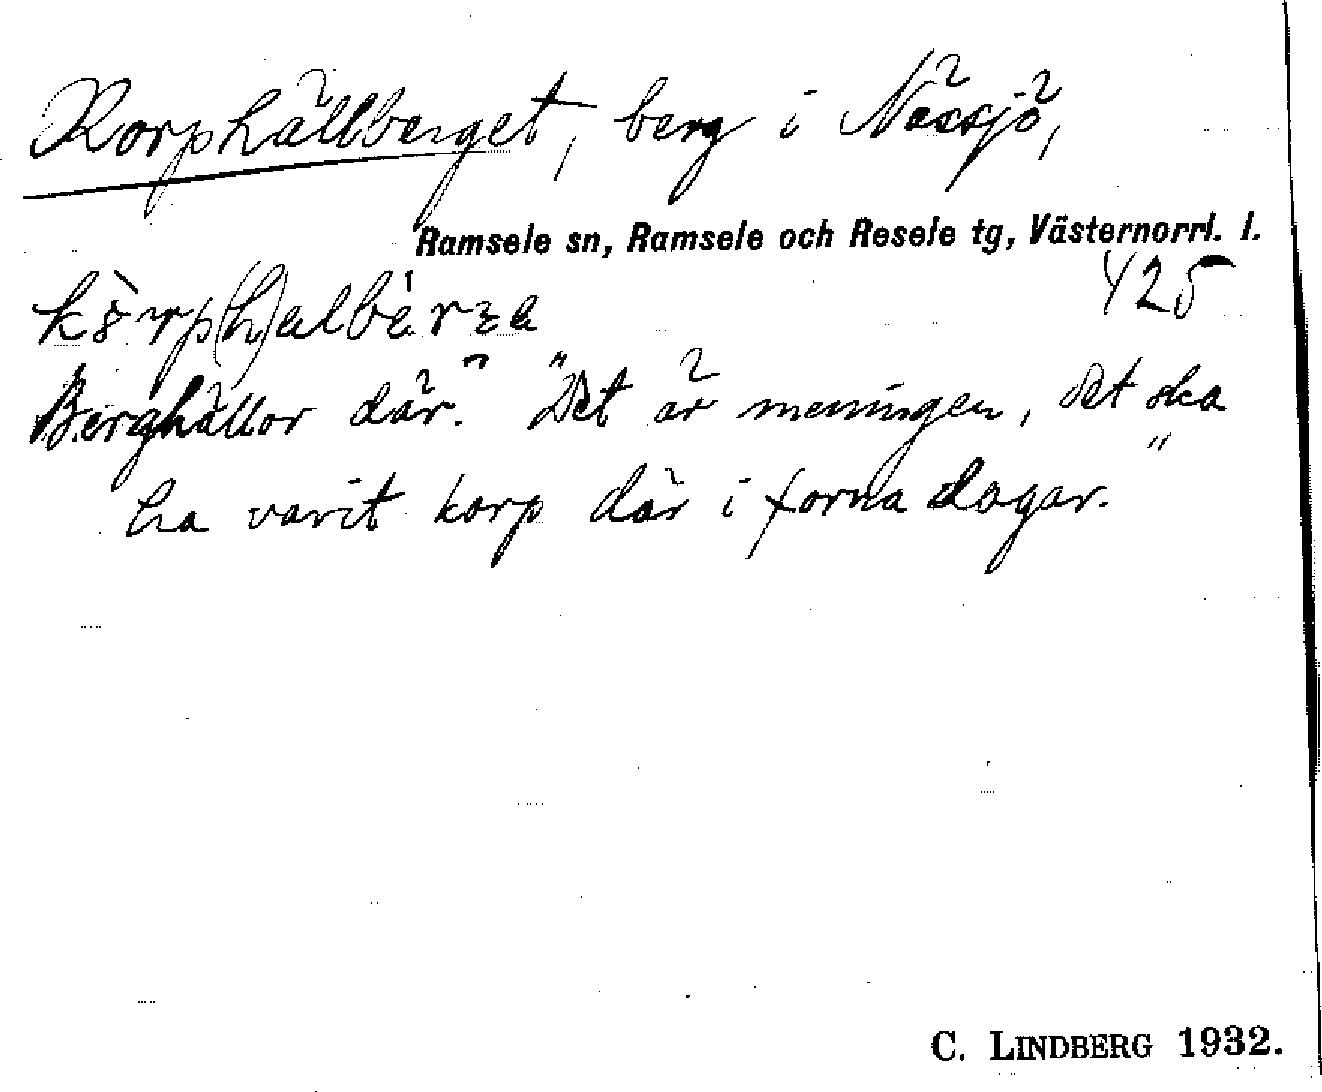 Korphällberget, berg i Nässjö,
Ramsele sn, Ramsele och Resele tg, Västernorrl. l.
425
Berghällor där." "Det är meningen, det ska
ha varit korp där i forna dagar."
C. LINDBERG 1932.